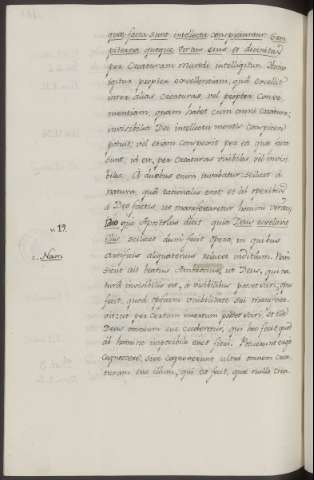 quae facta sunt intellecta conspiciuntur. Sem
piterna quoque virtus eius et divinitas
per Creaturam Mundi intelligitur. Homo
igitur propter excellentiam, quâ excellit
inter alias Creaturas vel propter Conve
nientiam, quam habet cum omni creatura;
invisibilia Dei intellectu mentis conspicere
potuit; vel etiam conspexit per ea quae facta
sunt, id est, per Creaturas visibiles vel invisi
biles. A duobus enim iuvabatur; scilicet à
natura, quae rationalis erat et ab operibus
à Deo factis, ut manifestaretur homini veritas,
v. 19. Ideo Apostolus dicit quia Deus revelavit
illis, scilicet dum fecit opera, in quibus
artificis aliquatenus relucet indicium. Nam
c. Nam sicut ait beatus Ambrosius, ut Deus, qui na
turâ invisibilis est, à visibilibus posset sciri, opus
fecit, quod opificem visibilitate sui manifesta
Deus omnium esse crederetur, qui hoc fecit quod
ab homine impossibile esset fieri. Potuerunt ergo
cognoscere, sive cognoverunt ultra omnem crea
turam esse illum, qui ea fecit, quae nulla crea